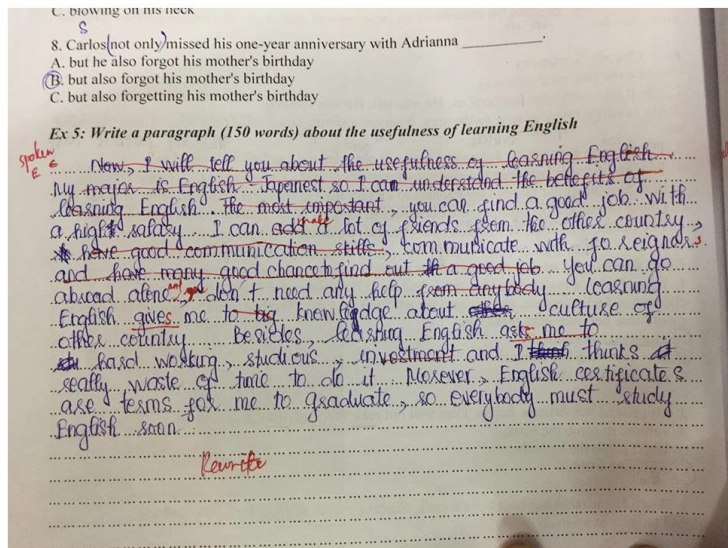 C. blowing on his neck
S
8. Carlos (not only) missed his one-year anniversary with Adrianna ____________.
A. but he also forgot his mother's birthday
B. but also forgot his mother's birthday
C. but also forgetting his mother's birthday
Ex 5: Write a paragraph (150 words) about the usefulness of learning English
spoken
E E
Now, I will tell you about the usefulness of learning English.
My major is English - Japanest so I can understand the benefits of
learning English. The most important, you can find a good job with
a hight salary. I can add make a lot of friends from the other country,
have good communication skills, communicate with foreigners.
and have many good chance to find out a good job. You can go
abroad alone, don't need any help from anybody learning
English gives me to big knowledge about culture of
other country. Besides, learning English asks me to
hard working, studious, investment and I thinks it
really waste of time to do it. Morever, English certificates
are terms for me to graduate, so everybody must study
English soon.
Rewrite